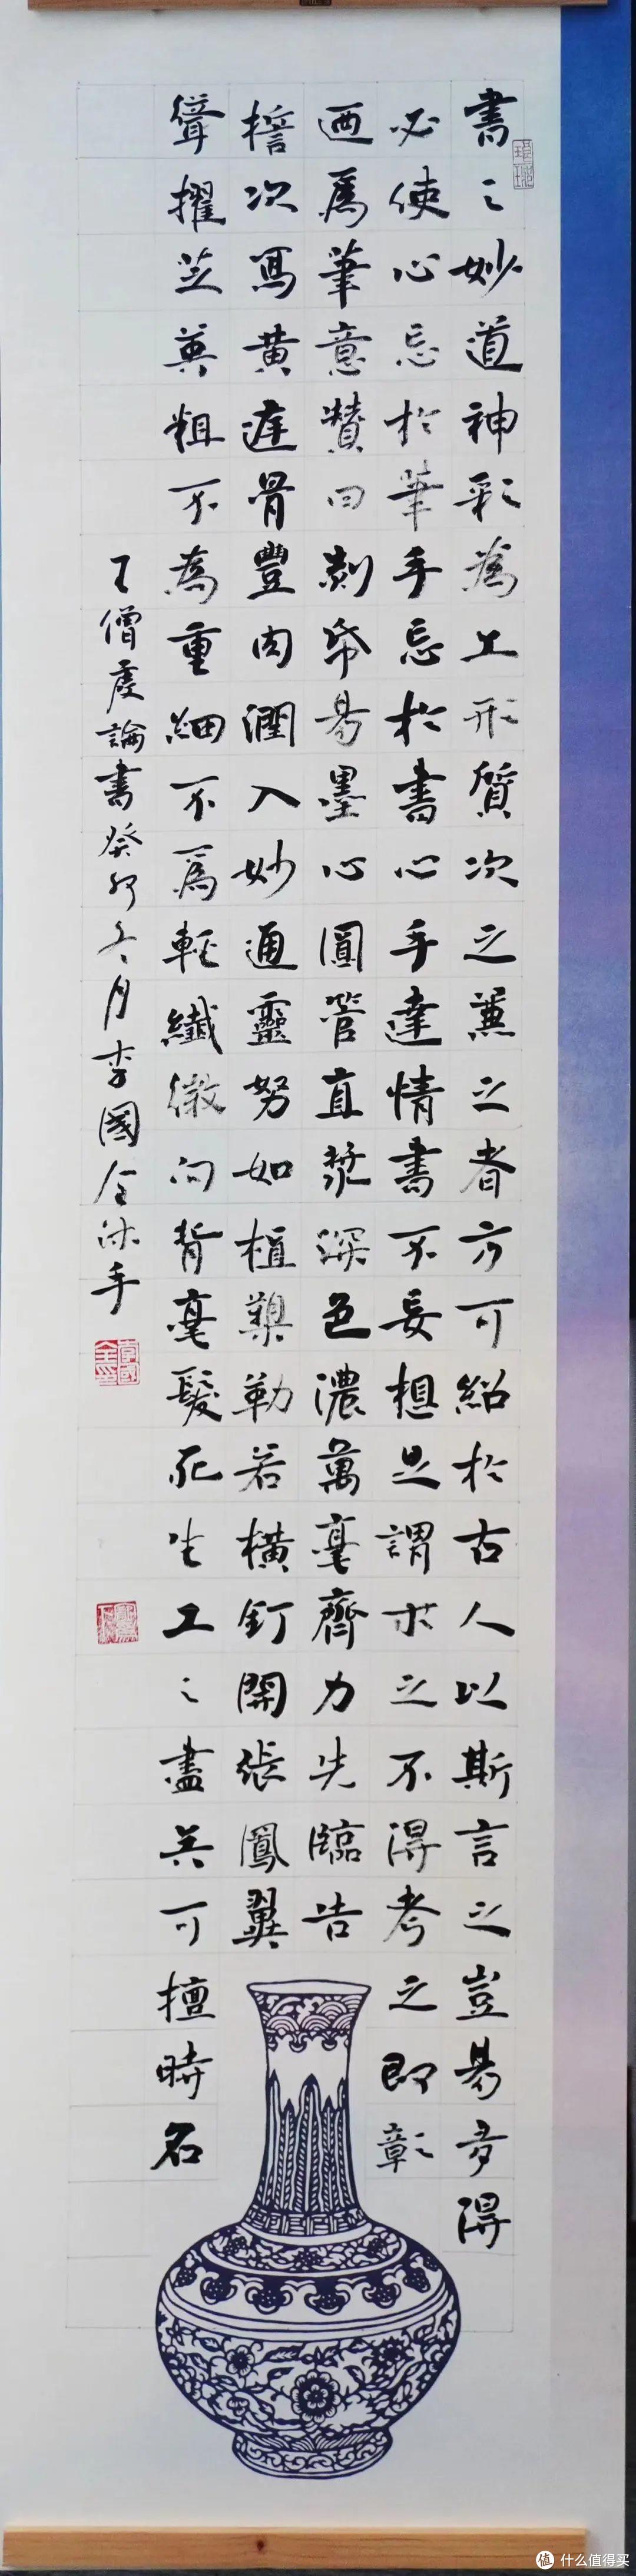 書之妙道神彩為上形質次之兼之者方可紹於古人以斯言之豈易多得
必使心忘於筆手忘於書心手達情書不妄想是謂求之不得考之即彰
迺爲筆意贊曰剡帋易墨心圓管直漿深色濃萬毫齊力先臨告
誓次寫黃庭骨豐肉潤入妙通靈努如植槊勒若橫釘開張鳳翼
聳擢芝英粗不為重細不爲輕纖微向背毫髮死生工之盡矣可擅時名
王僧虔論書癸卯冬月李國全沐手
李國全印
值 什么值得买